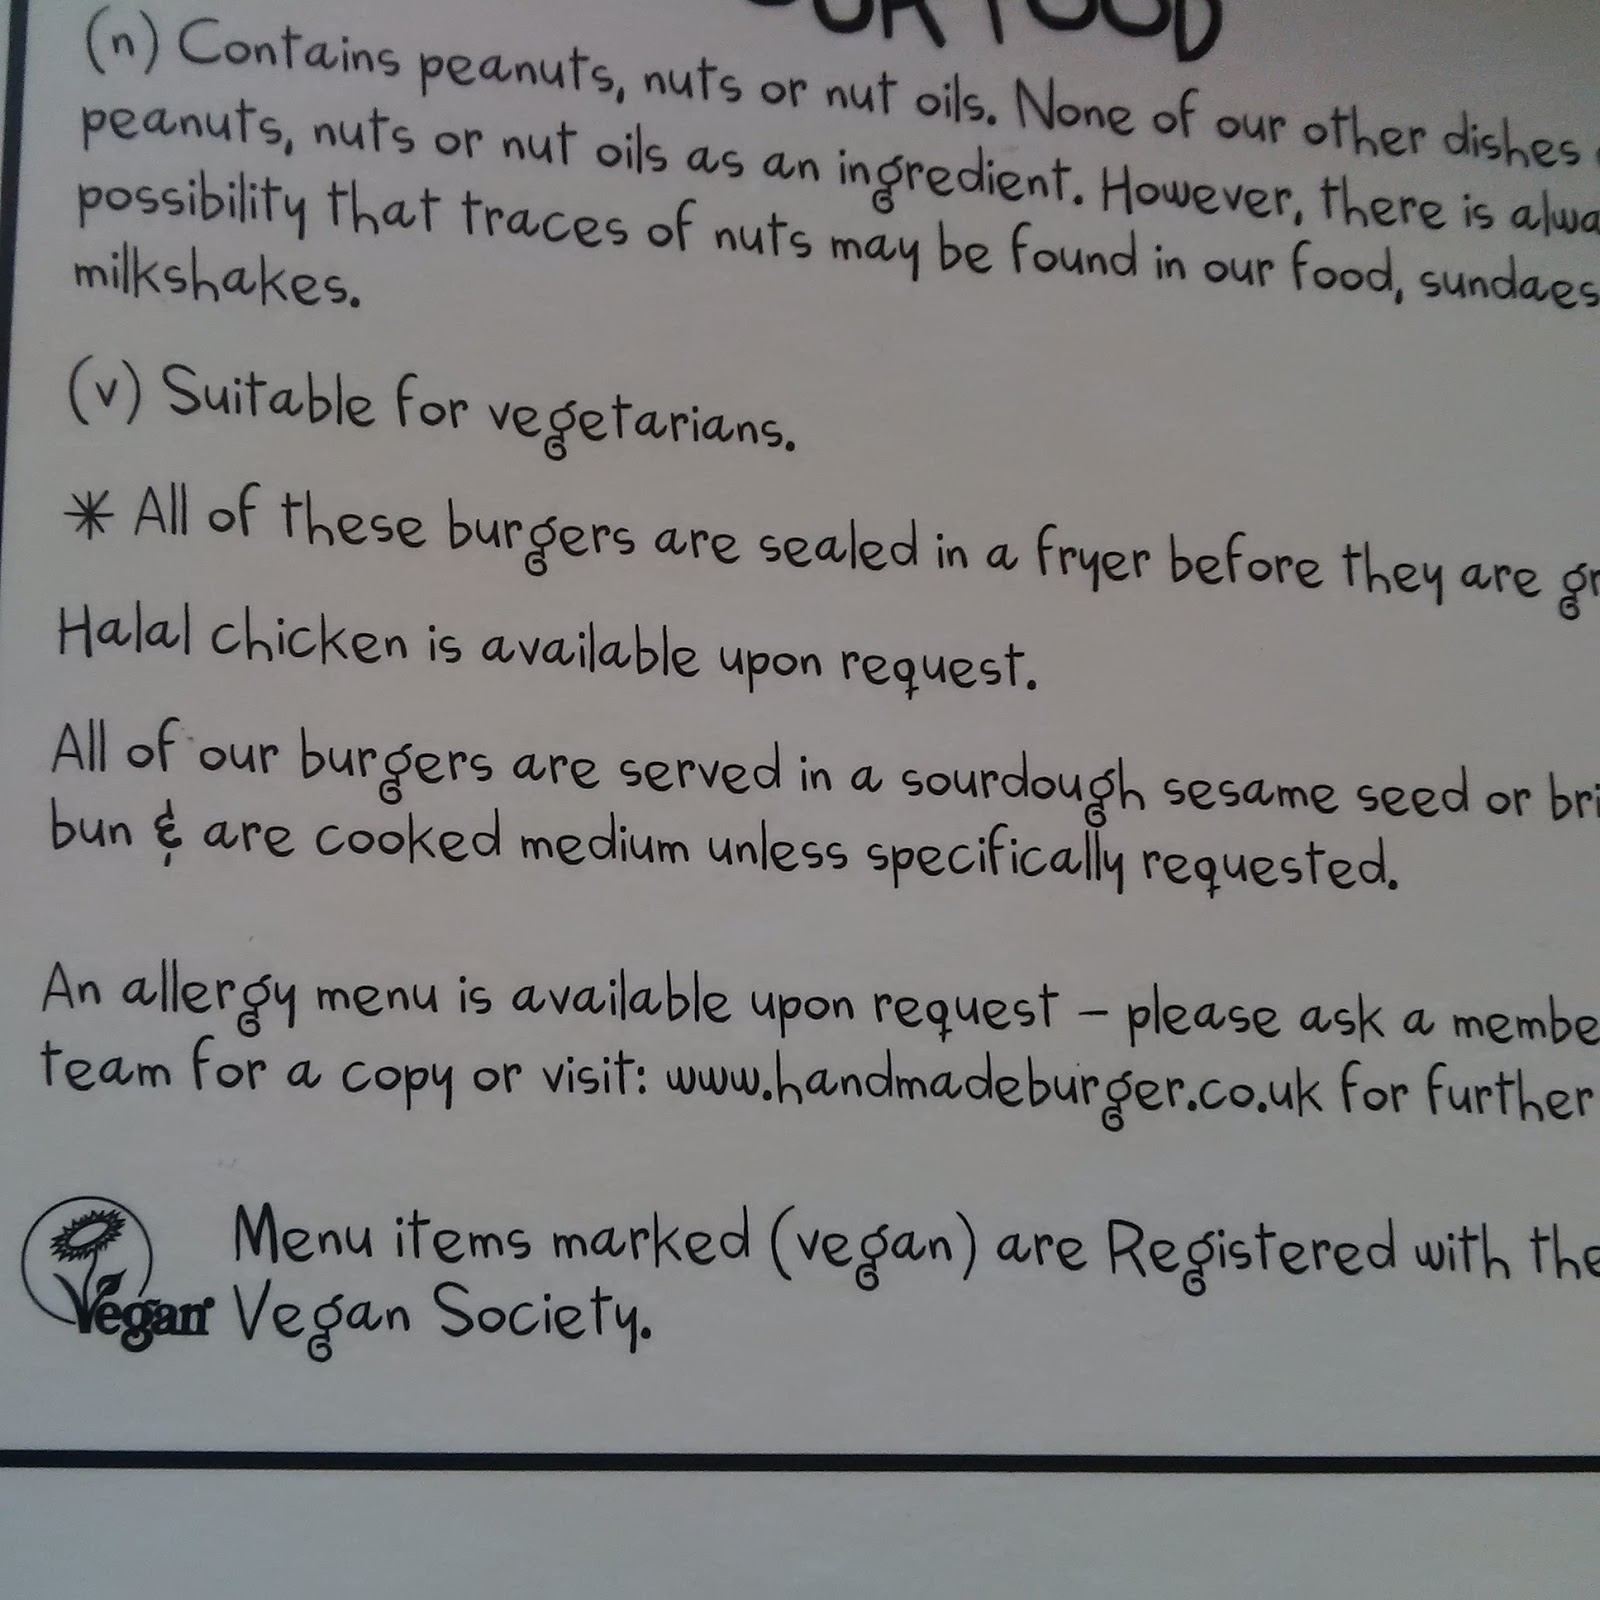 OUR FOOD
(n) Contains peanuts, nuts or nut oils. None of our other dishes
peanuts, nuts or nut oils as an ingredient. However, there is alwa
possibility that traces of nuts may be found in our food, sundaes
milkshakes.
(v) Suitable for vegetarians.
* All of these burgers are sealed in a fryer before they are gr
Halal chicken is available upon request.
All of our burgers are served in a sourdough sesame seed or bri
bun & are cooked medium unless specifically requested.
An allergy menu is available upon request – please ask a membe
team for a copy or visit: www.handmadeburger.co.uk for further
Menu items marked (vegan) are Registered with the
Vegan Vegan Society.